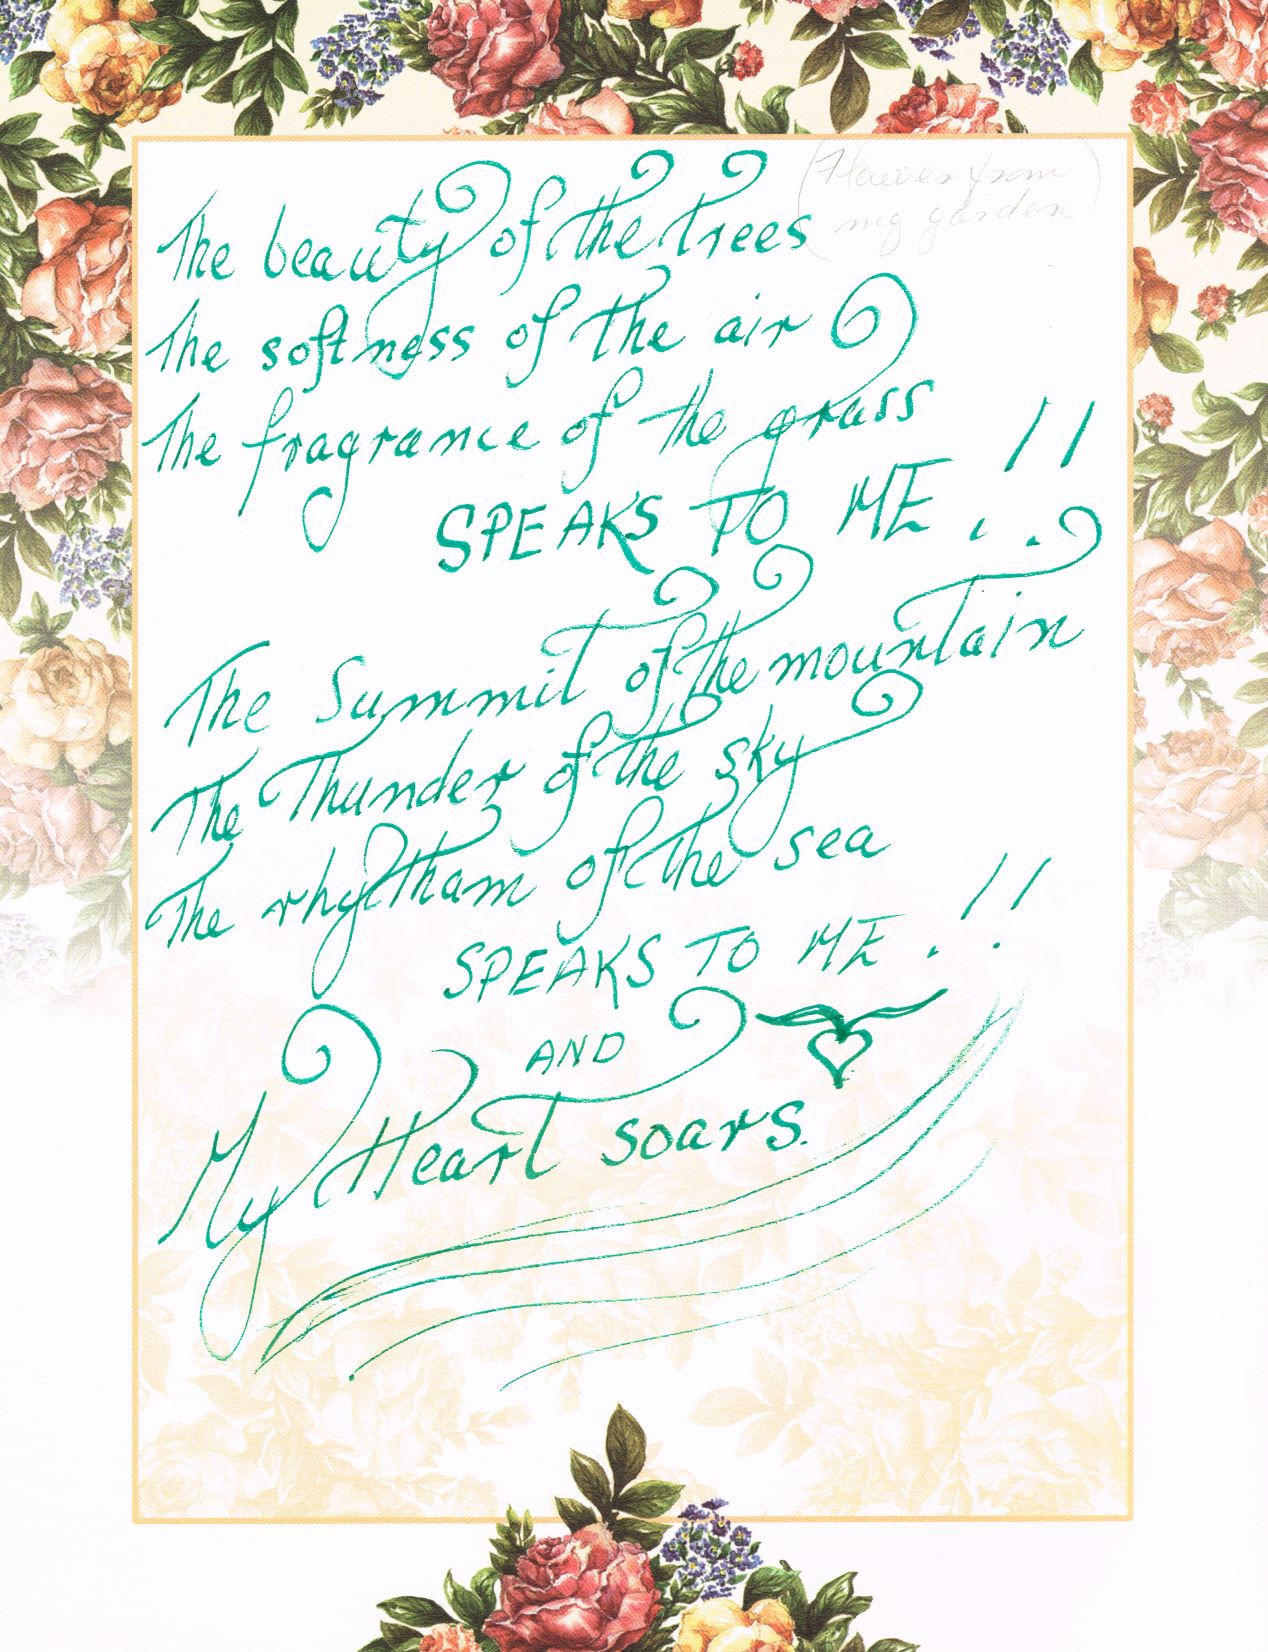 (Flower from
my garden)
The beauty of the trees
The softness of the air
The fragrance of the grass
SPEAKS TO ME!!
The Summit of the mountain
The Thunder of the sky
The rhytham of the sea
SPEAKS TO ME!!
AND
My Heart soars.